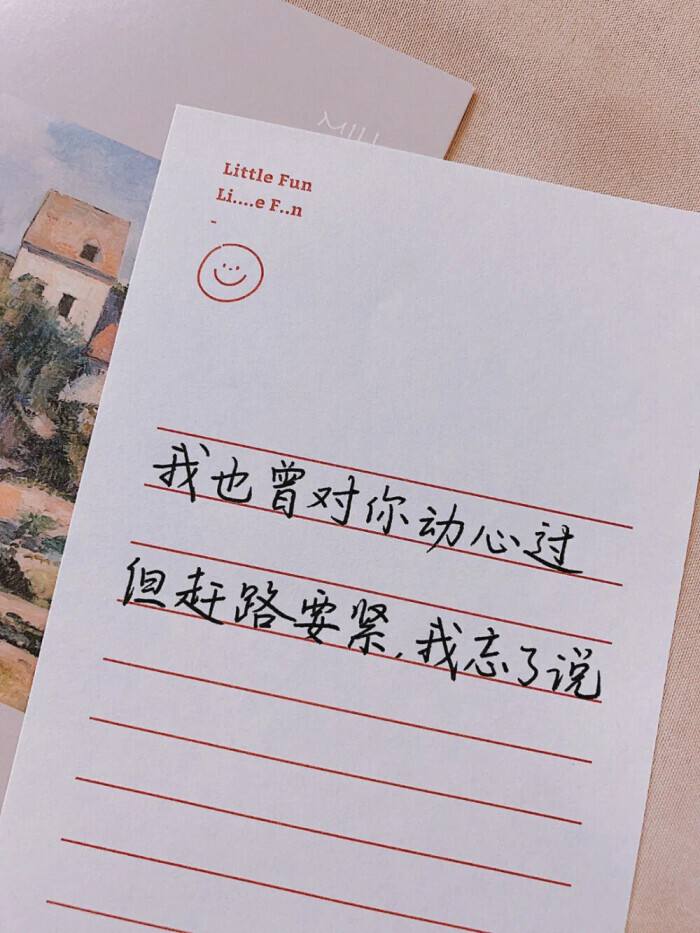 MILL
Little Fun
Li....e F..n
-
我也曾对你动心过
但赶路要紧,我忘了说